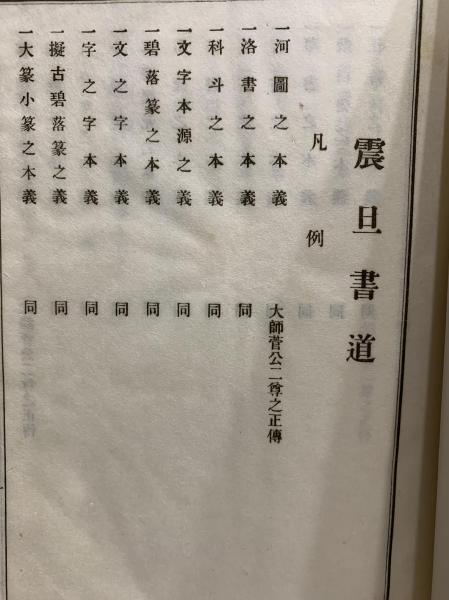 震旦書道
凡例
一河圖之本義 大師菅公二尊之正傳
一洛書之本義 同
一科斗之本義 同
一文字本源之義 同
一碧落篆之本義 同
一文之字本義 同
一字之字本義 同
一擬古碧落篆之義 同
一大篆小篆之本義 同